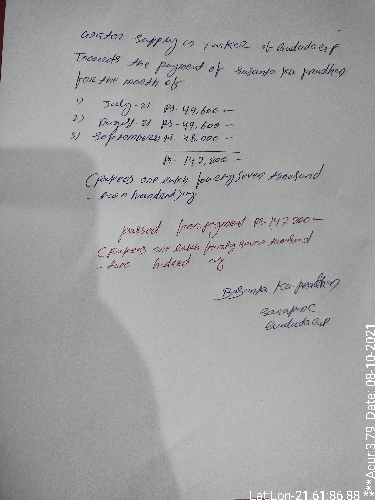 water supply in Tanker at Gududa GP
Towards the payment of Susanta Ku Pradhan
for the month of
1) July-21 Rs-49,600-
2) August-21 Rs-49,600-
3) September-21 Rs- 48,000-
Rs- 147,200-
(Rupees one lakh fourty seven thousand
- two hundred)ony
passed for payment Rs-147200-
(Rupees one lakh fourty seven thousand
- two hundred ony
Basanta Ku Pradhan
Sarapanc
Gududa GP
Lat Lon-21.61:86.88 ***Acur:3.79 Date: 08-10-2021